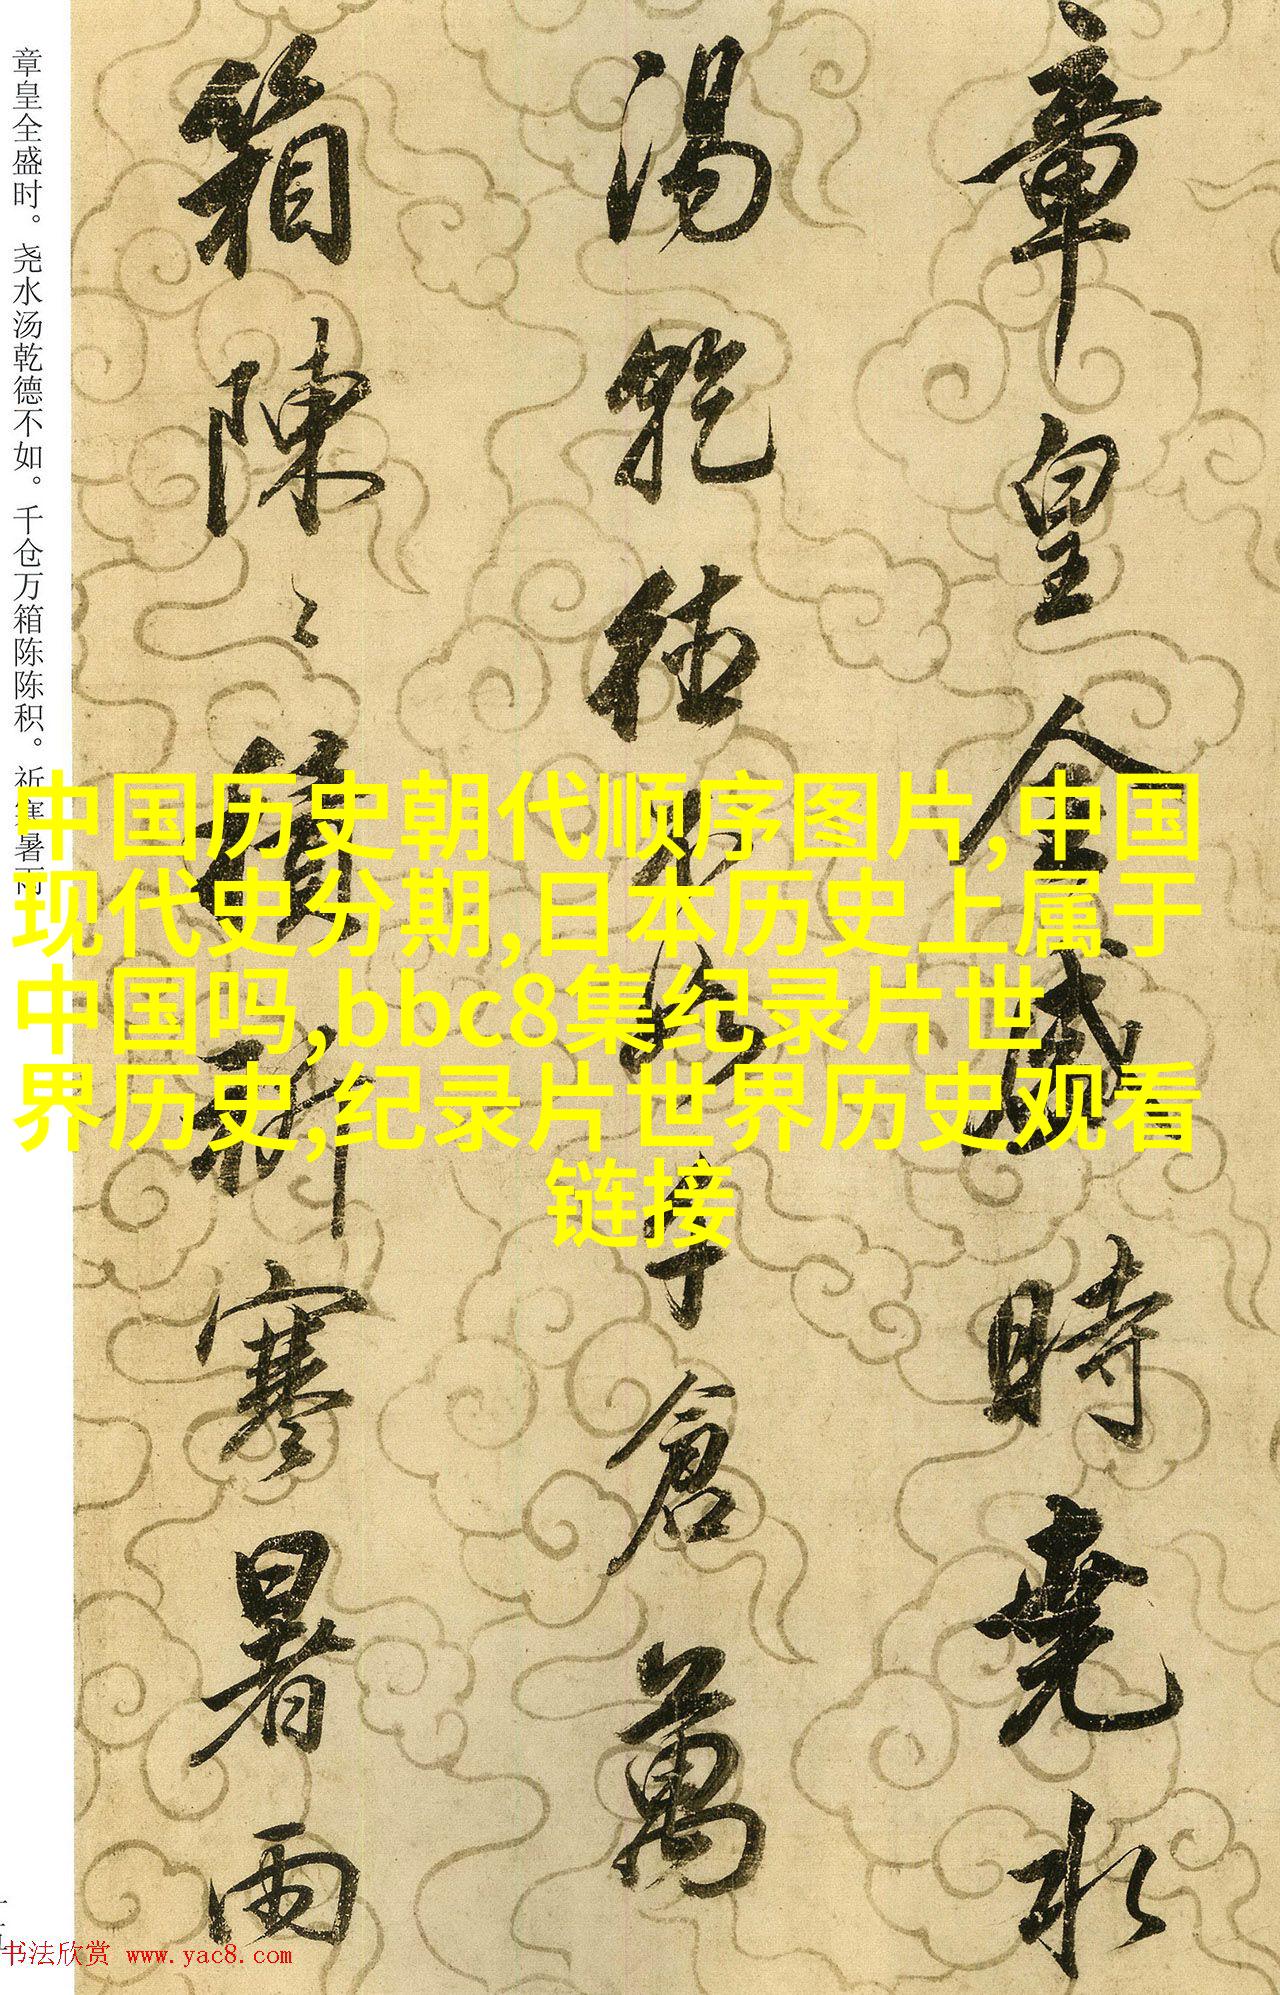 章皇全盛時堯水
湯乾德不如千倉萬
箱陳〻積祈寒暑雨
章皇全盛时。尧水汤乾德不如。千仓万箱陈陈积。祈寒暑雨
中国历史朝代顺序图片,中国
现代史分期,日本历史上属于
中国吗,bbc8集纪录片世
界历史,纪录片世界历史观看
链接
书法欣赏 www.yac8.com